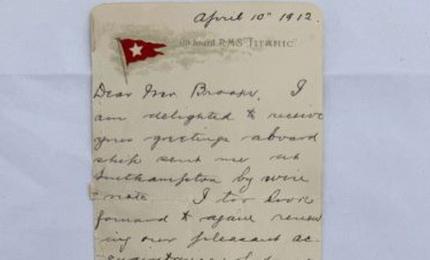 April 10th 1912.
on board R.M.S. "TITANIC"
Dear Mr. Brooks, I
am delighted to receive
your greetings aboard
ship sent me at
Southampton by wire
note I too look
forward to again renew
ing our pleasant ac-